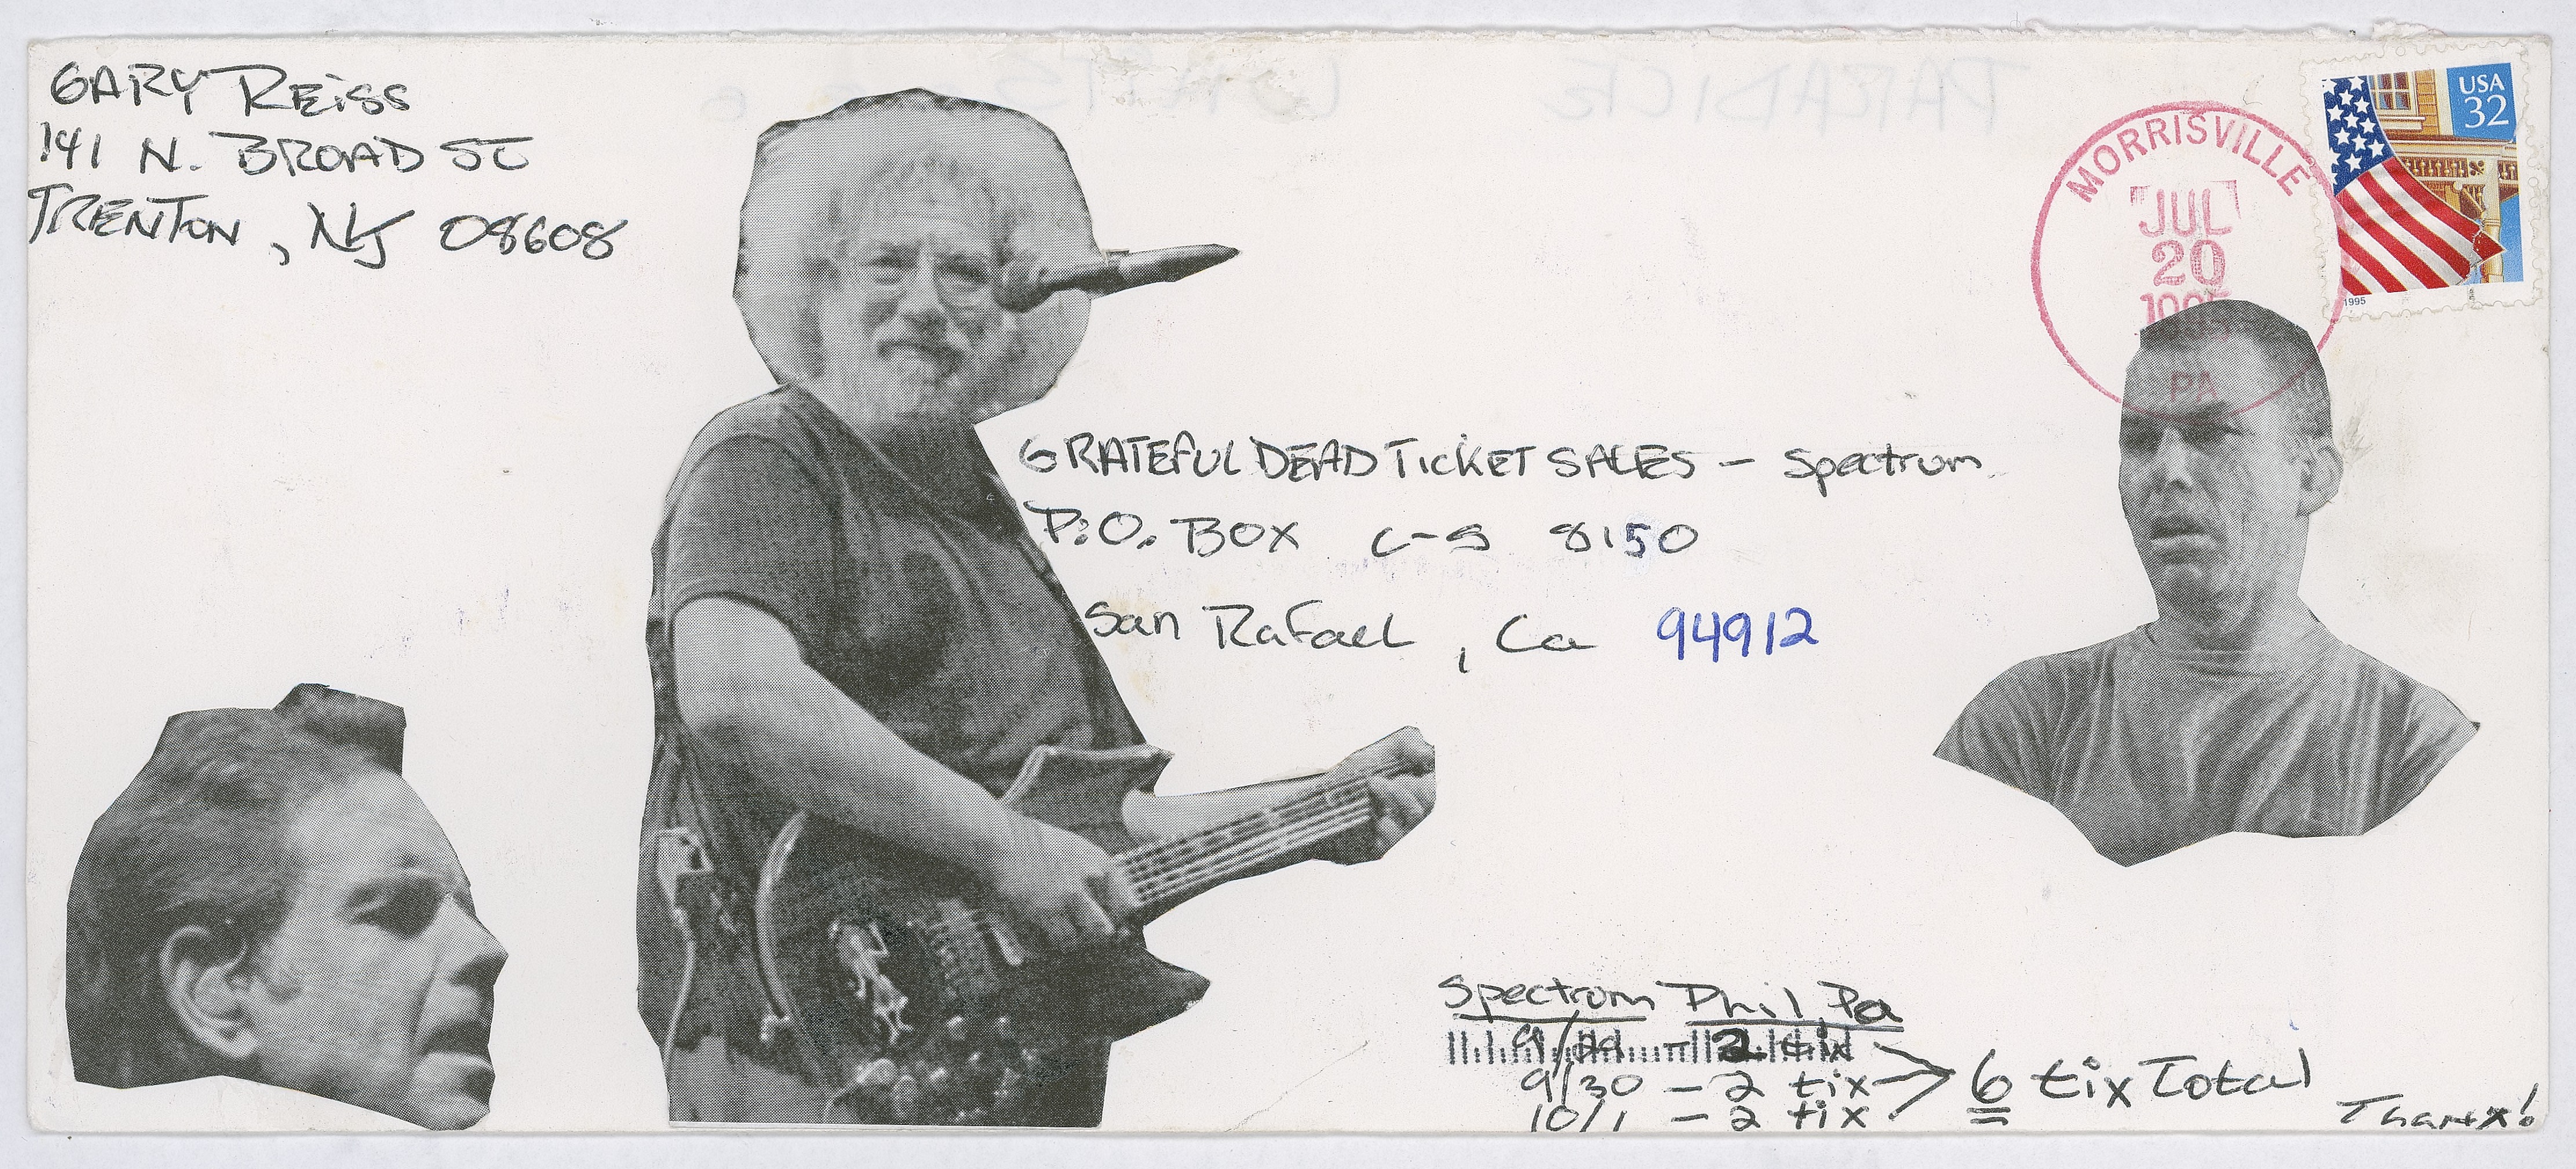 GARY REISS
141 N. BROAD ST
TRENTON, NJ 08608
USA
32
1995
MORRISVILLE
JUL
20
1995
PA
GRATEFUL DEAD TICKET SALES - Spectrum
P.O. BOX C-S 8150
San Rafael, Ca 94912
Spectrum Phil, Pa
9/29 - 2 tix
9/30 - 2 tix > 6 tix Total
10/1 - 2 tix
Thanx!